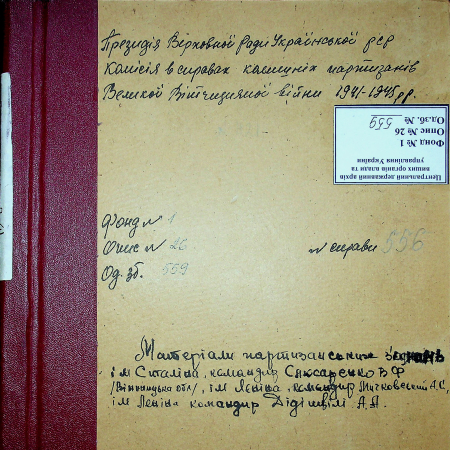 Президія Верховної Ради Української РСР
Комісія в справах колишніх партизанів
Великої Вітчизняної війни 1941-1945 рр.
Центральний державний архів
вищих органів влади та
управління України
Фонд № 1
Опис № 26
Од.зб. № 559
Фонд № 1
Опис № 26
№ справи 556
Од. зб. 559
Матеріали партизанських з'єднань
ім Сталіна, командир Слюсаренко В Ф
/Вінницька обл/, ім Леніна, командир Мичковський А.С,
ім Леніна командир Дідішвілі А.Л.